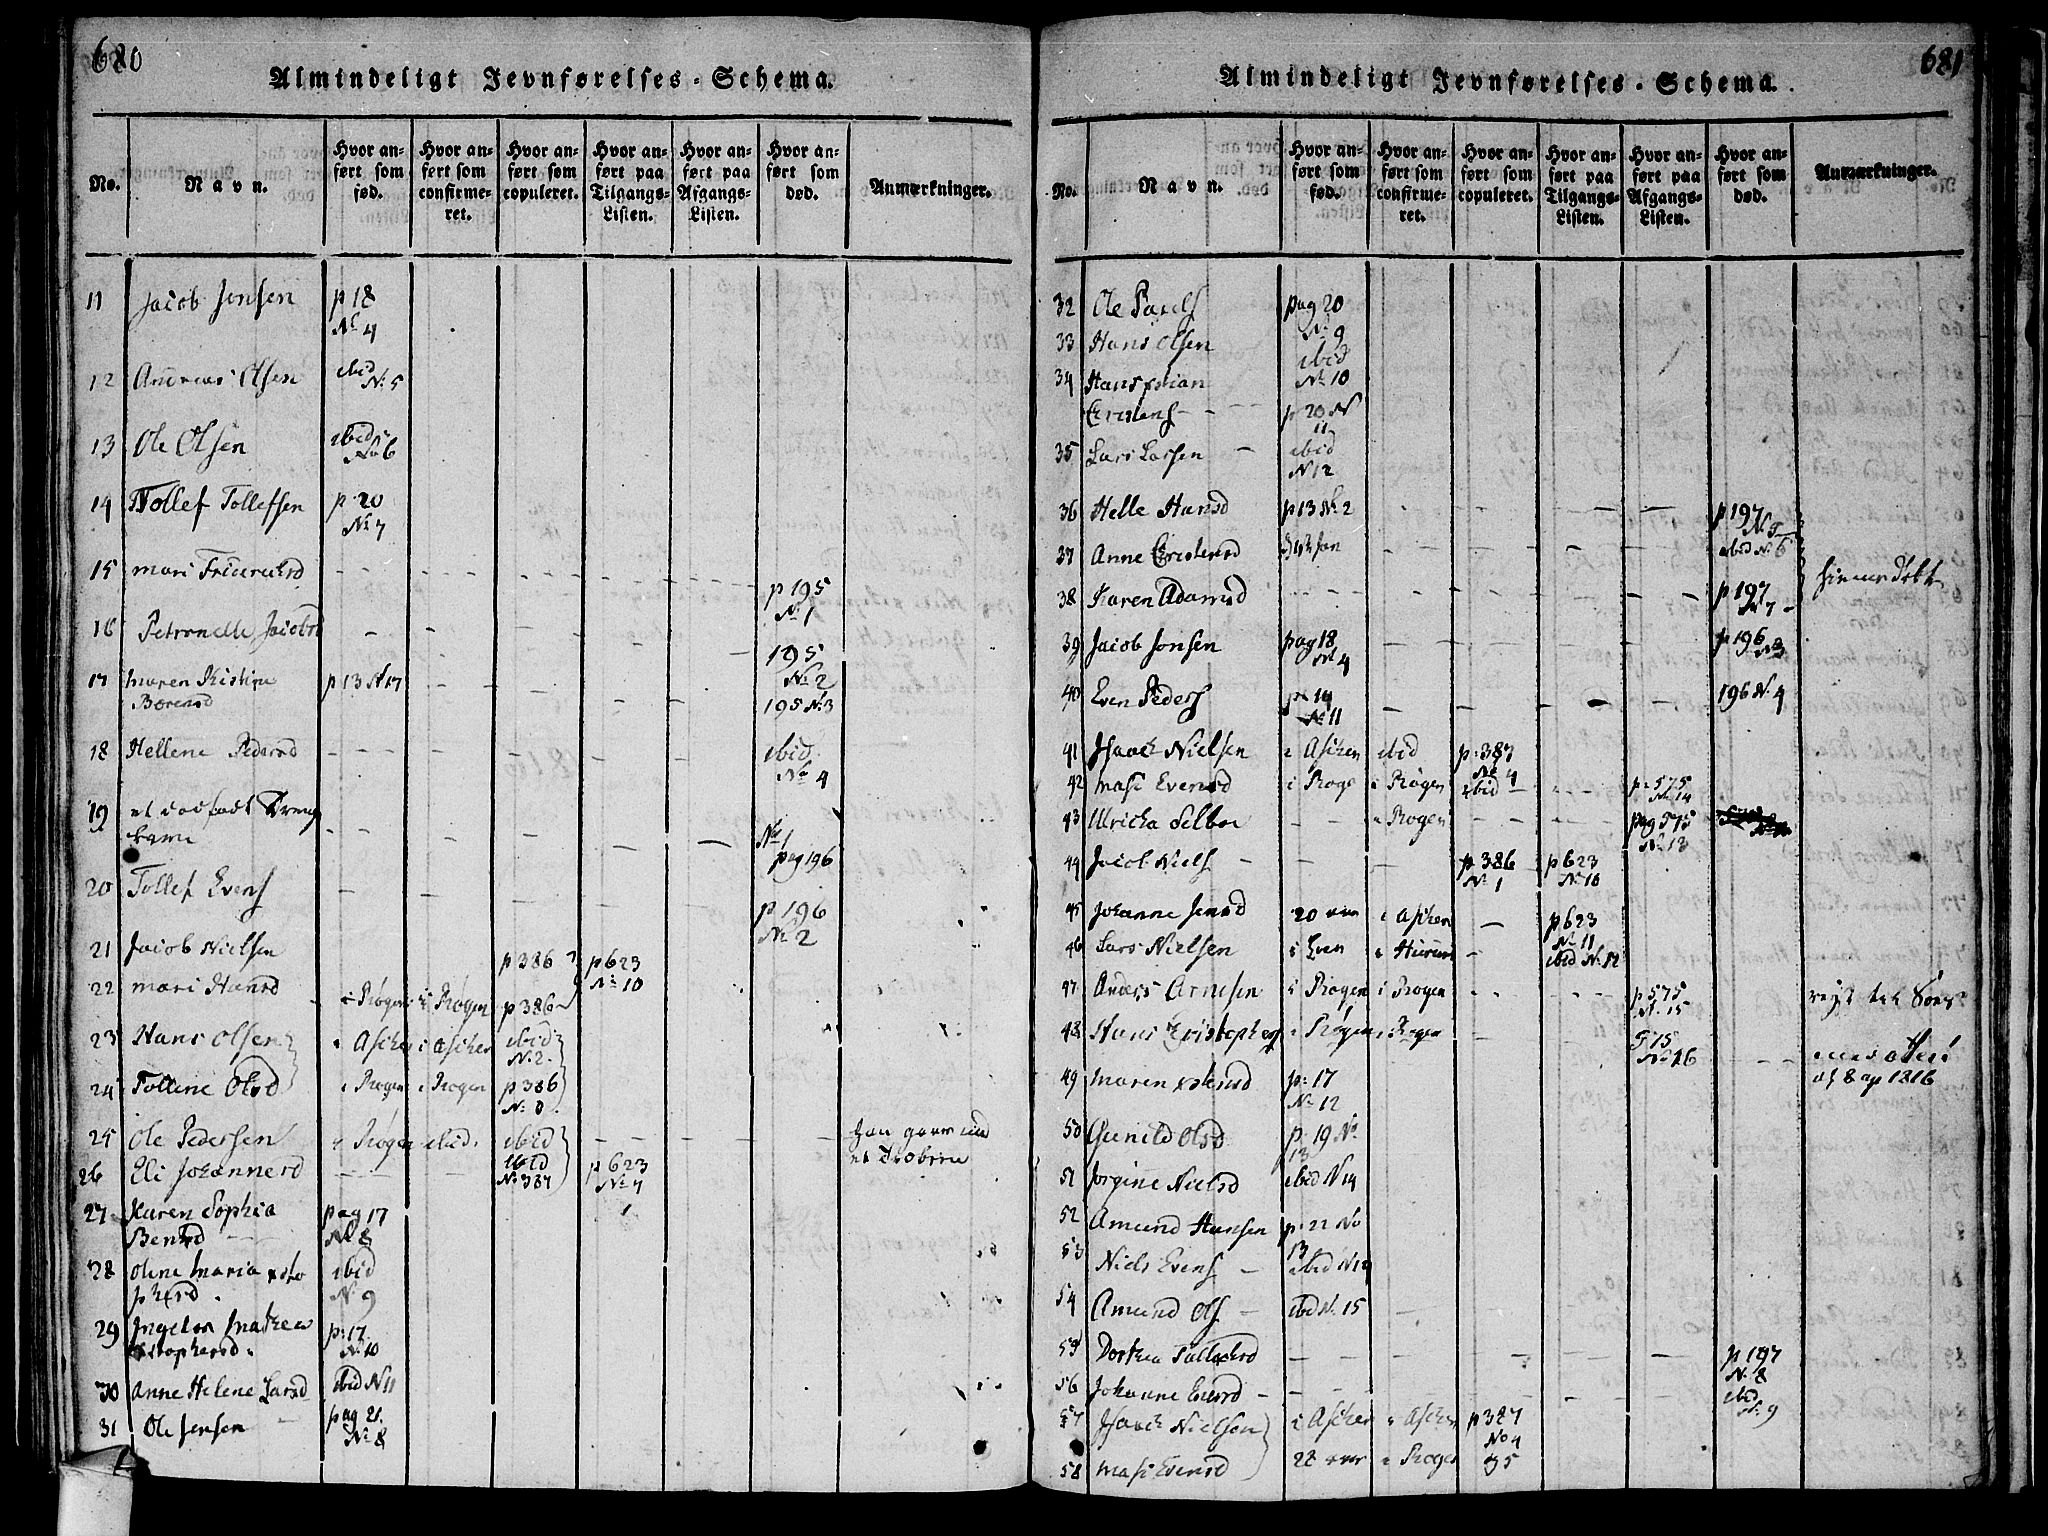 680
Almindeligt Jevnførelses-Schema.
No. Navn. Hvor anført som fød. Hvor anført som confirmeret. Hvor anført som copuleret. Hvor anført paa Tilgangs-Listen. Hvor anført paa Afgangs-Listen. Hvor anført som død. Anmærkninger.
11 Jacob Jensen p 18
No 4
12 Andreas Olsen ibid No 5
13 Ole Olsen ibid No 6
14 Tollef Tollefsen p 20
No 7
15 Mari p 195
No 1
16 Petronelle Jacobs 195
No 2
17 Maren Kistine p 13 N 17
195 No 3
18 Hellene Pedersd ibid
No 4
19 et dødfødt Drenge
barn No 1
pag 196
20 Tollef Evens p 196
No 2
21 Jacob Nielsen p 386 p 623
No 10
22 Mari Hansd i Røgen i Røgen p 386
23 Hans Olsen i Asker i Asker ibid
No 2
24 Tollene Olsd i Røgen i Røgen p 386
25 Ole Pedersen i Røgen ibid ibid
26 Eli Johannesd ibid p 623
No 387
27 Karen Sophia pag 17
Bentsd No 8
28 Olene Maria xsto ibid
phersd No 9
29 Ingebor Mathea p: 17
xstophersd. No 10
30 Anne Helene Larsd ibid N 11
31 Ole Jensen pag 21.
No 8
681
Almindeligt Jevnførelses-Schema.
No. Navn. Hvor anført som fød. Hvor anført som confirmeret. Hvor anført som copuleret. Hvor anført paa Tilgangs-Listen. Hvor anført paa Afgangs-Listen. Hvor anført som død. Anmærkninger.
32 Ole pag 20
No 9
33 Hans Olsen ibid
No 10
34 Hans xstian
p 20 N
11
35 Lars Larsen ibid
N 12
36 Helle Hansd p 13 No 2 p 197
37 Anne ibid No 6
38 Karen Adamsd p 197
No 7
39 Jacob Jonsen pag 18 p 196
No 4 No 3
40 Even Peders p 19 196 No 4
No 11
41 Isaach Nielsen i Asker ibid p: 387
No 4
42 Masi Evensd i Røge i Røgen ibid p: 575
No 14
43 Ulricka i Røgen pag 575
No 13
44 Jacob Niels p 386 p 623
No 1 No 10
45 Johanne 20 i Asker p 623
No 11
46 Lars Nielsen i i Hurum ibid No 12
47 Anders Arnesen i Røgen i Røgen p 575
No 15
48 Hans Christophers i Røgen i Røgen 575
No 16
af 8 ap 1816
49 Maren p: 17
No 12
50 Gunild Olsd p: 19 No
13
51 Jorgine Nielsd ibid N 14
52 Amund Hansen p: 22 No
13
53 Niels Evens ibid N 14
54 Amund Ols ibid No 15
55 Dorthea p 197
No 8
56 Johanne Evensd ibid
No 9
57 Isaach Nielsen i Asker i Asker p 387
No 4
58 Masi Evensd 28 i Røgen